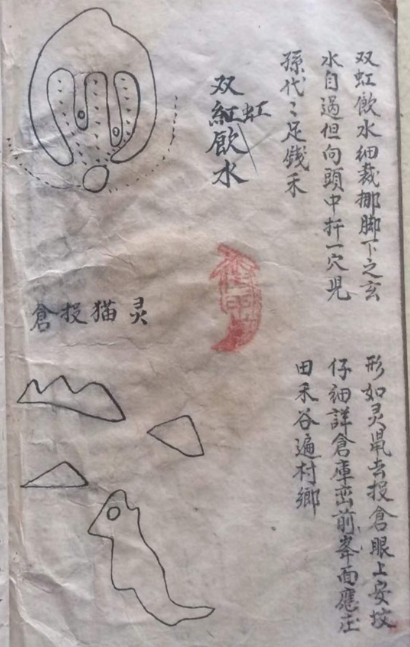 双虹飲水细裁挪脚下之玄
水自過但向頭中扦一穴児
孫代〻足钱禾
双紅飲水
虹
灵猫投倉
形如灵鼠去投倉眼上安坟
仔細詳倉庫峦前峯面應庄
田禾谷遍村鄉